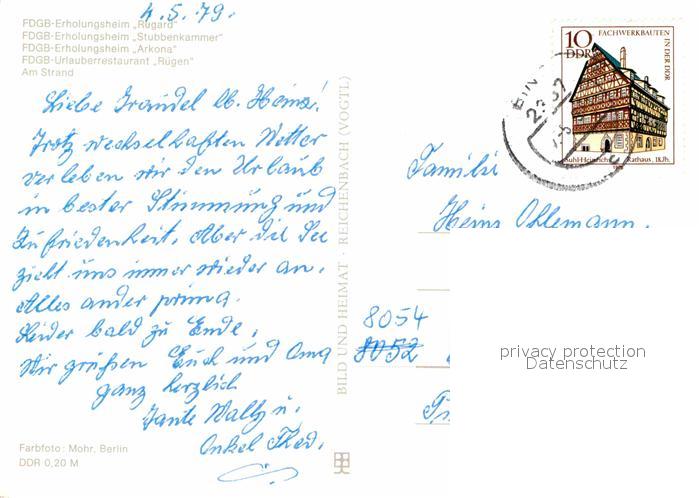 4.5.79.
FDGB-Erholungsheim „Rugard“
FDGB-Erholungsheim „Stubbenkammer“
FDGB-Erholungsheim „Arkona“
FDGB-Urlauberrestaurant „Rügen“
Am Strand
Liebe
Trotz wechselhaften Wetter
verleben wir den Urlaub
in bester Stimmung und
Zufriedenheit. Aber die See
zieht uns immer wieder an.
Alles ander prima.
Leider bald zu Ende.
Wir grüßen Euch und Oma
ganz herzlich
Tante u.
Onkel
Farbfoto: Mohr, Berlin
DDR 0,20 M
BILD UND HEIMAT · REICHENBACH (VOGTL)
10
DDR
FACHWERKBAUTEN
IN DER DDR
Suhl-Heinrichs Rathaus, 18.Jh.
Familie
Heinz Ohlemann.
8054
8052
privacy protection
Datenschutz